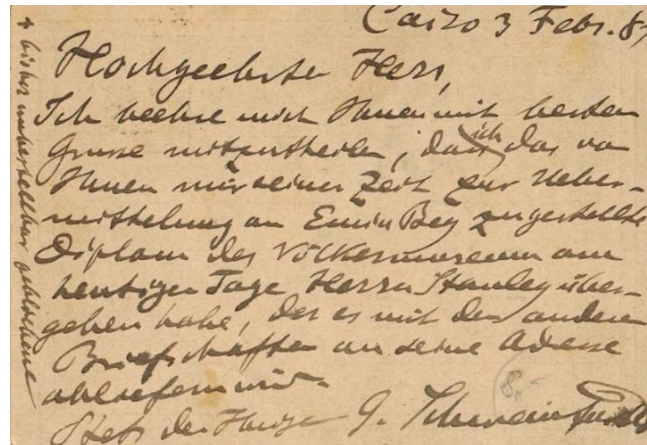 Cairo 3 Febr. 87
Hochgeehrter Herr,
Ich beehre mich Ihnen mit besten
Grusse mitzutheilen, dass ich das von
Ihnen mir seiner Zeit zur Ueber-
mittelung an Emin Bey zugestellte
Diplom des Völkermuseum am
heutigen Tage Herrn Stanley über-
geben habe, der es mit den anderen
Briefschaften an seine Adresse
abliefern wird.
Stets der Ihrige G. Schweinfurth
+ bisher unbestellbar gebliebene